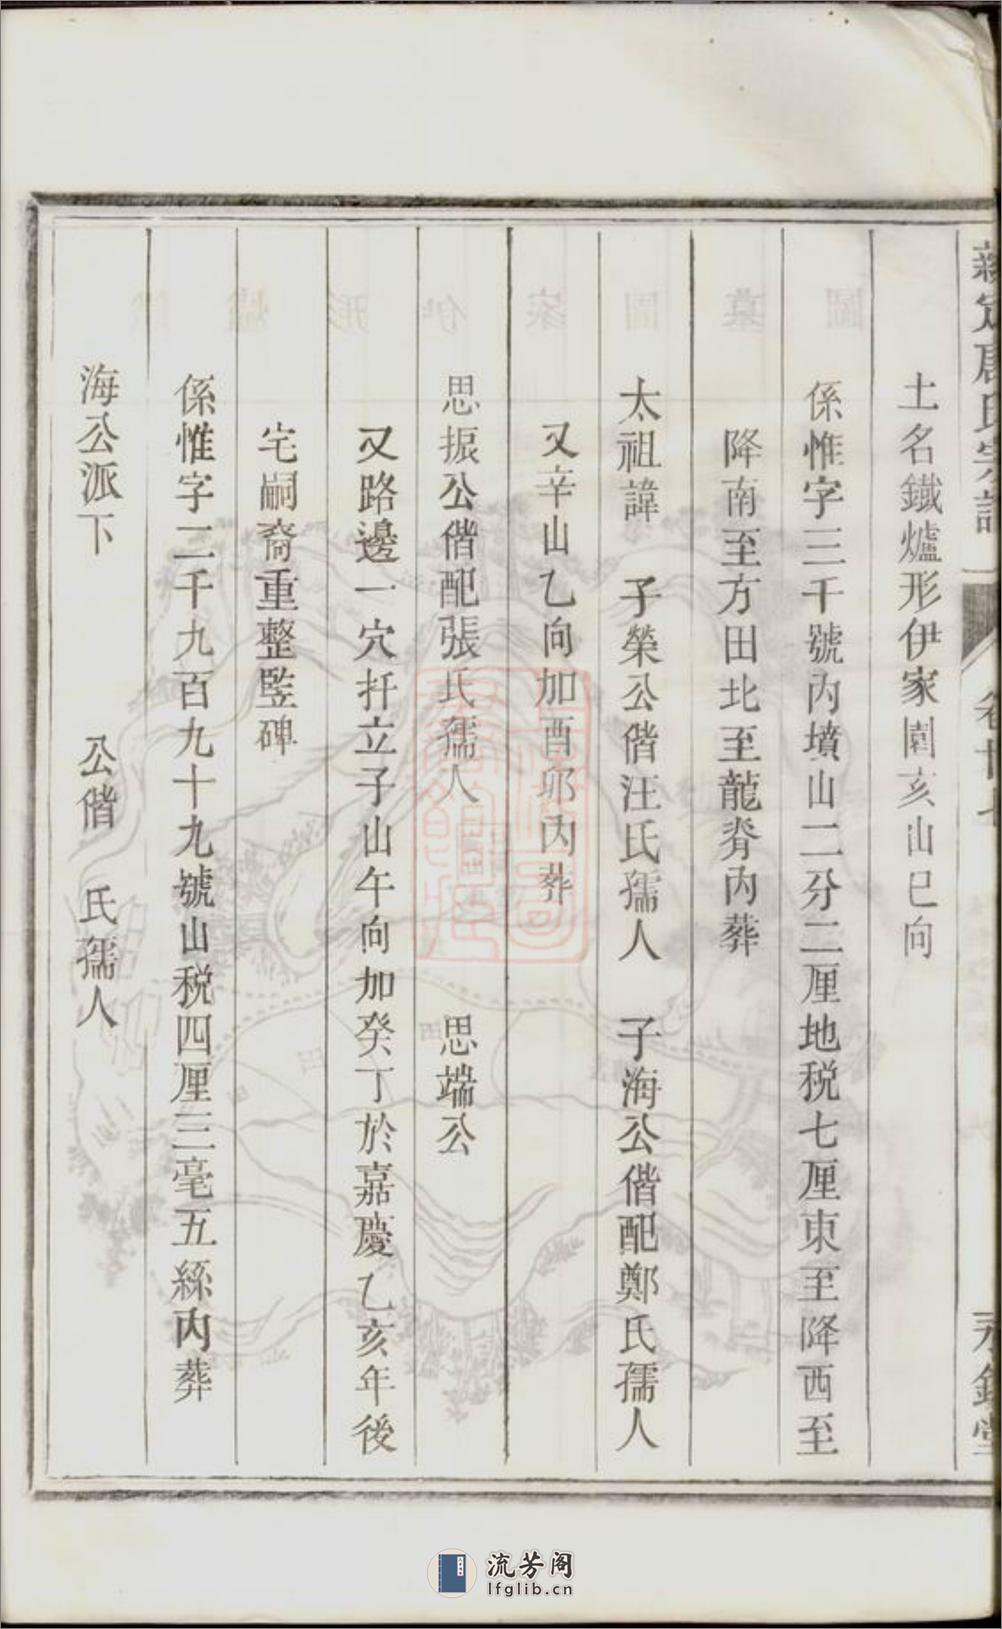 土名鐵爐形伊家園亥山巳向
係惟字三千號內墳山二分二厘地税七厘東至降西至
降南至方田北至龍脊內葬
太祖諱 子榮公偕汪氏孺人 子海公偕配鄭氏孺人
又辛山乙向加酉卯內葬
思振公偕配張氏孺人 思端公
又路邊一穴扦立子山午向加癸丁於嘉慶乙亥年後
宅嗣裔重整監碑
係惟字二千九百九十九號山税四厘三毫五絲內葬
海公派下 公偕 氏孺人
流芳阁
lfglib.cn